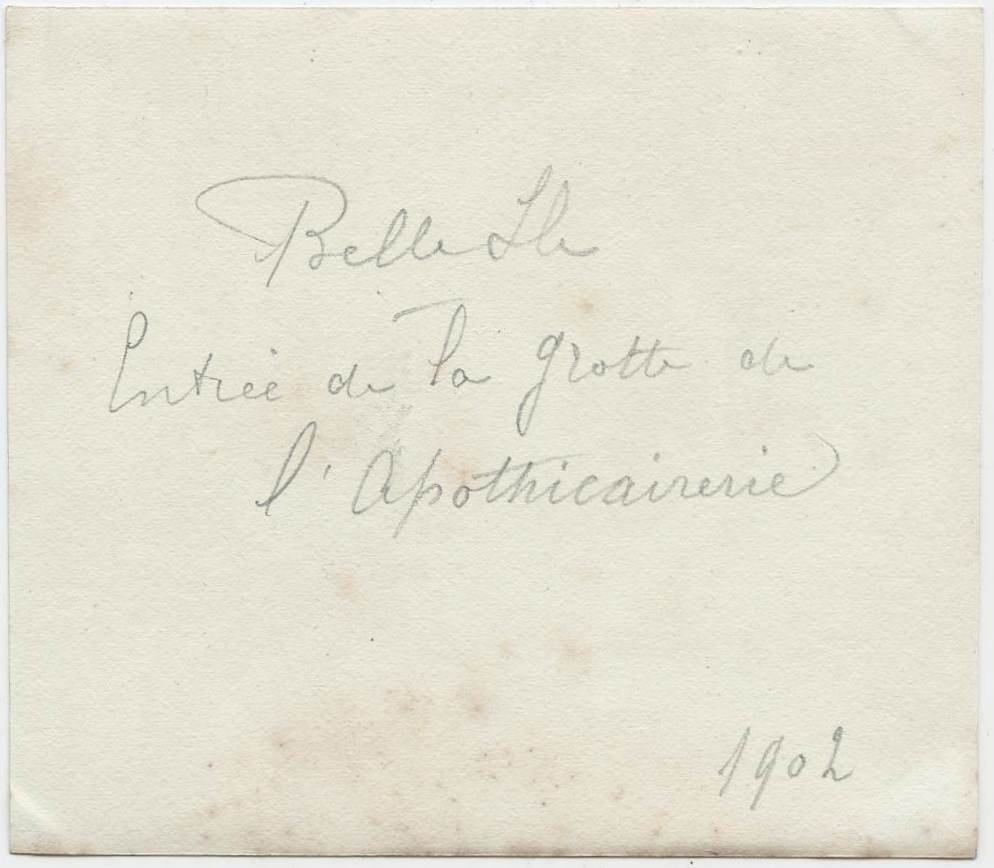 Belle Ile
Entrée de la grotte de
l'Apothicairerie
1902